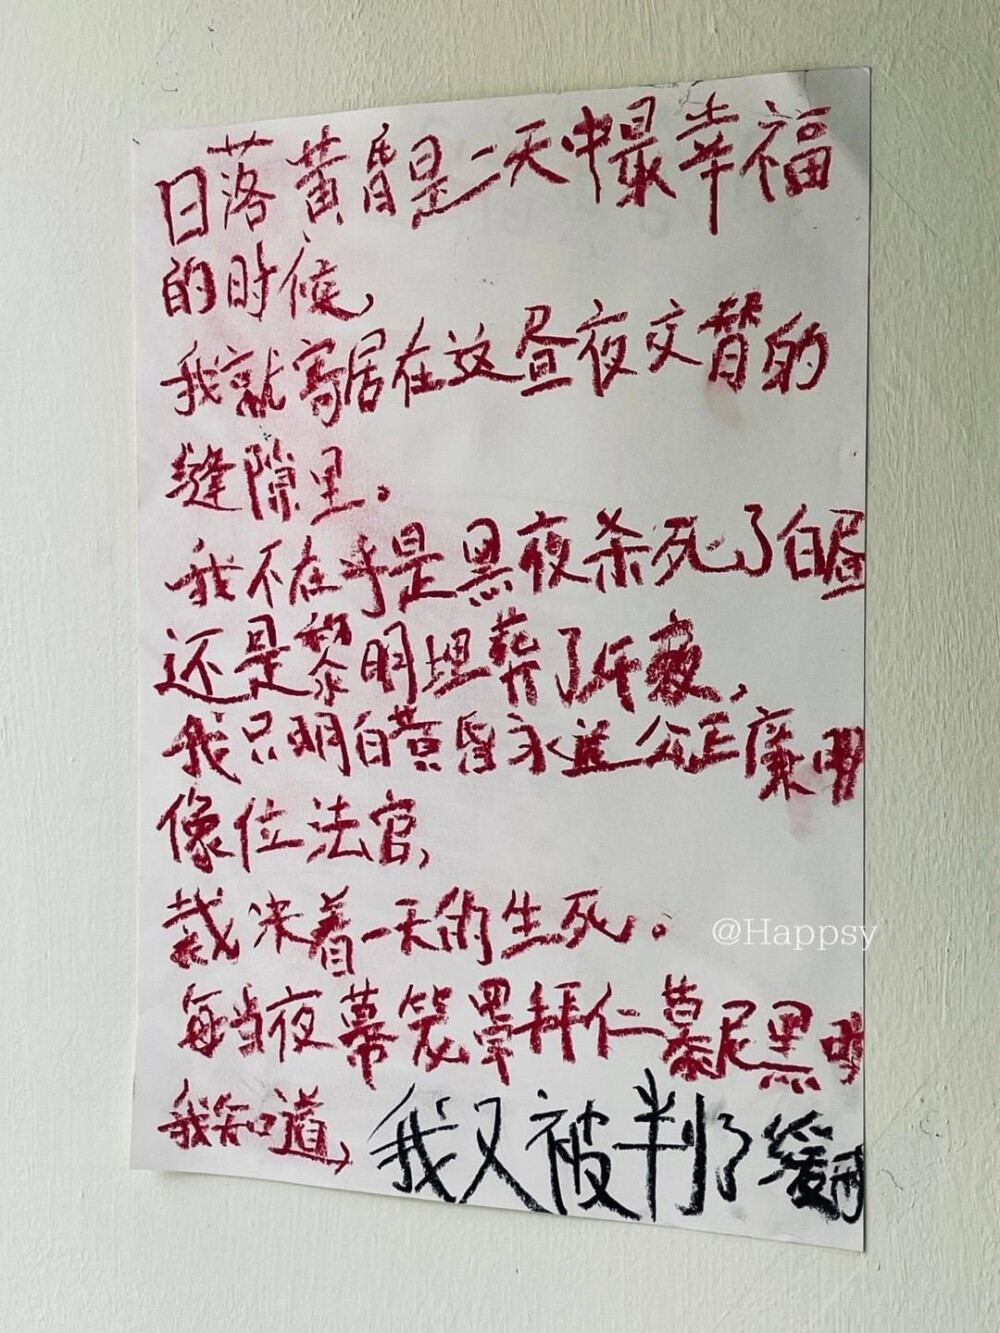 日落黄昏是一天中最幸福
的时候,
我就寄居在这昼夜交替的
缝隙里。
我不在乎是黑夜杀死了白昼
还是黎明坦葬了午夜,
我只明白黄昏永远公正廉明
像位法官,
裁决着一天的生死。
@Happsy
每当夜幕笼罩拜仁慕尼黑时
我知道, 我又被判了缓